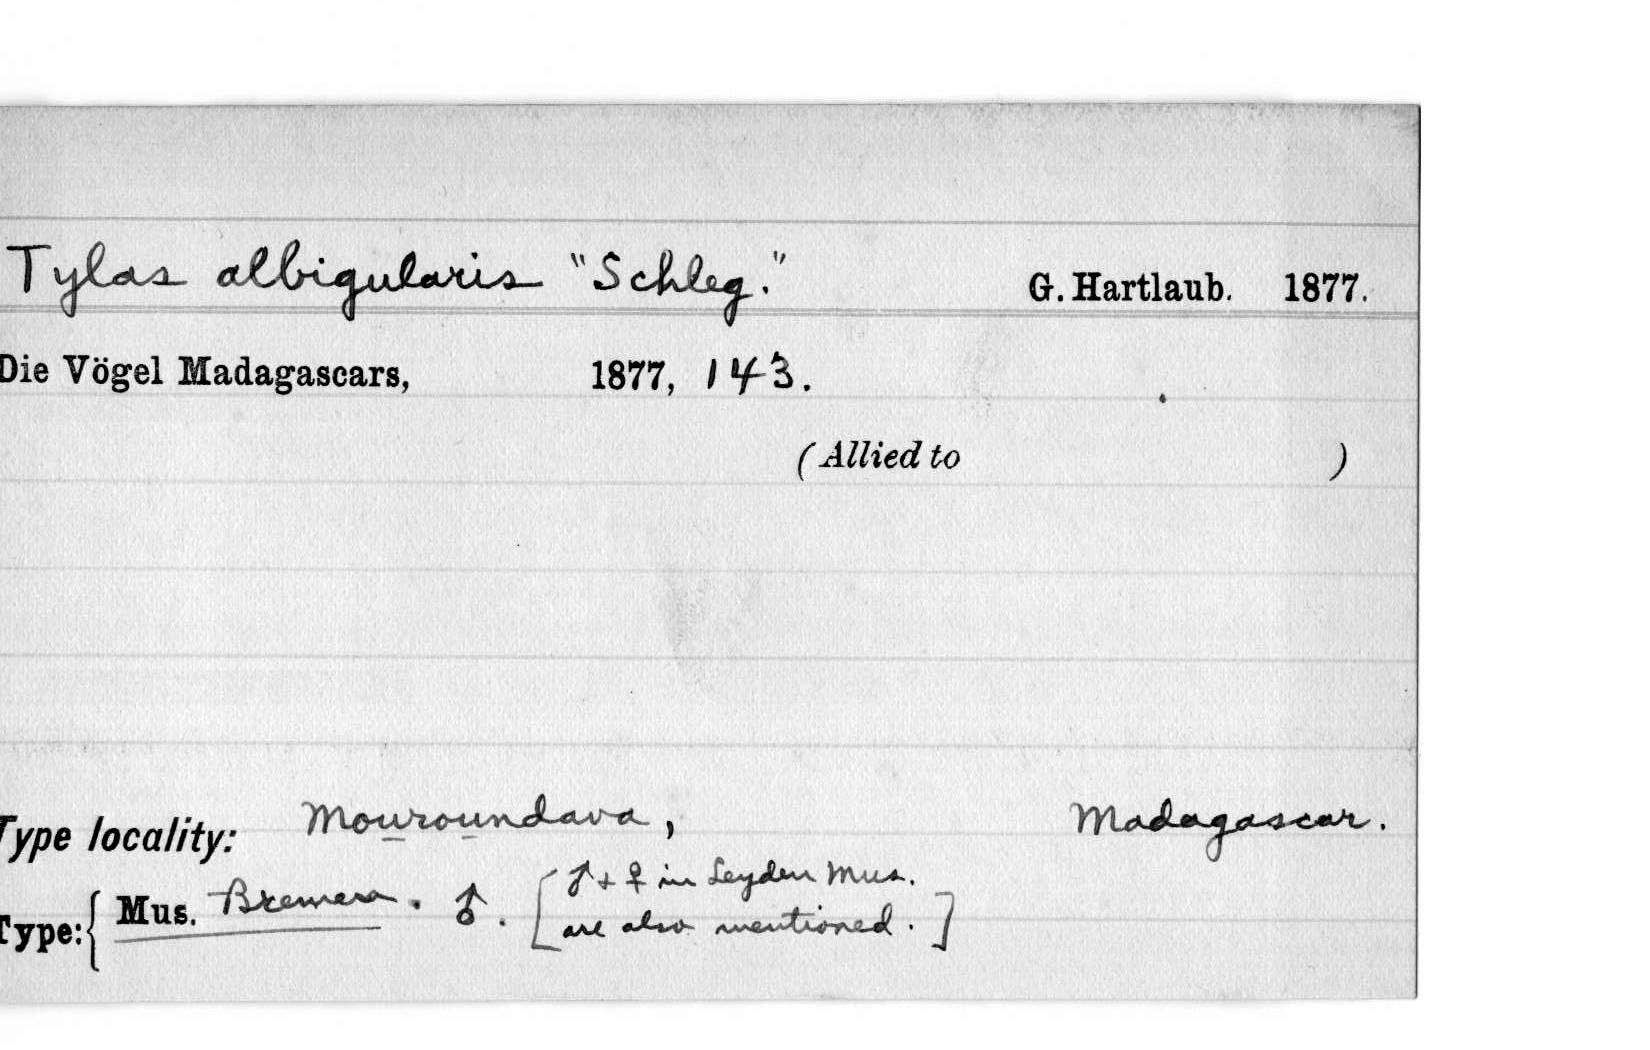 Tylas albigularis "Schleg." G. Hartlaub. 1877.
Die Vögel Madagascars, 1877, 143.
(Allied to )
Type locality: Mouroundava, Madagascar.
♂ + ♀ in Leyden Mus.
Type: { Mus. Bremen. ♂. [ are also mentioned. ]